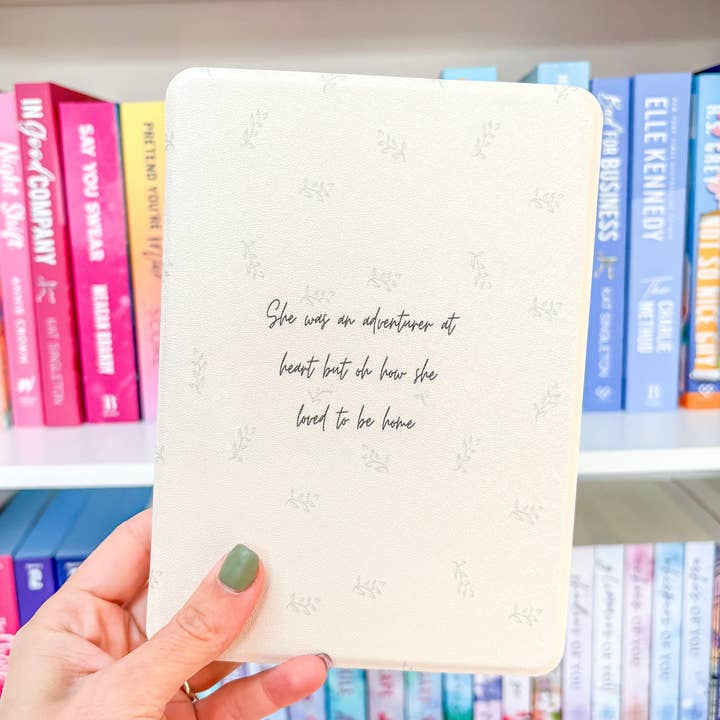 She was an adventurer at
heart but oh how she
loved to be home
Night Shift
ANNIE CROWN
IN Good COMPANY
KAT SINGLETON
SAY YOU SWEAR
MEAGAN BRANDY
PRETEND YOU'RE
Bad FOR BUSINESS
KAT SINGLETON
ELLE KENNEDY
The CHARLIE METHOD
NOT SO NICE GUY
OF YOU
OF YOU
OF YOU
whispers OF YOU
echoes OF YOU